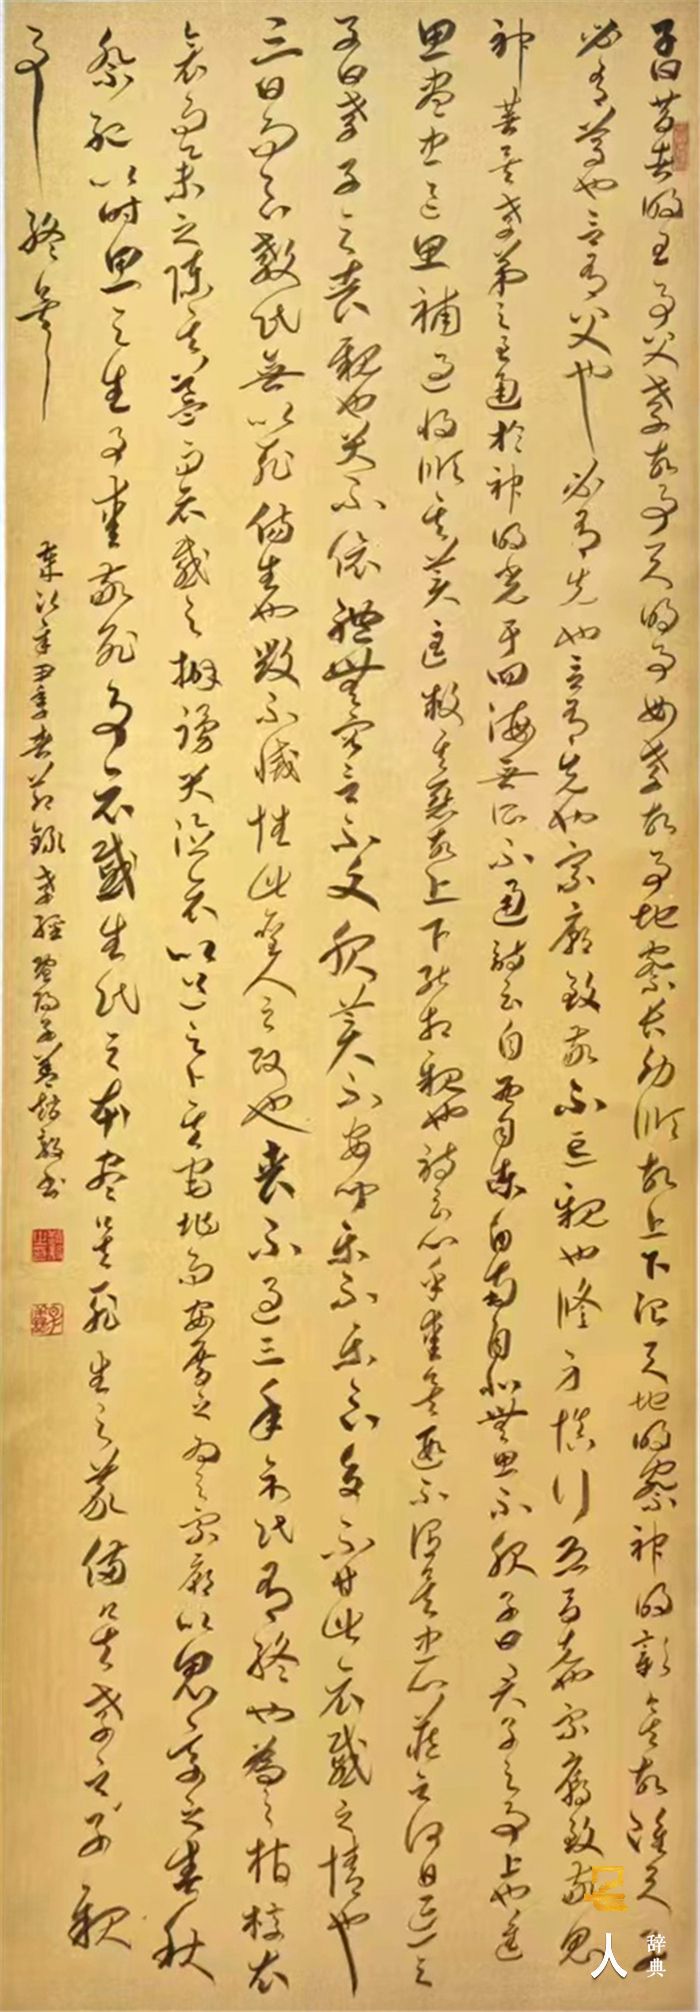 子曰昔者明王事父孝故事天明事母孝故事地察長幼順故上下治天地明察神明彰矣故雖天子
必有尊也言有父也必有先也言有兄也宗廟致敬不忘親也修身慎行恐辱先也宗廟致敬鬼
神著矣孝弟之至通於神明光于四海無所不通詩云自西自東自南自北無思不服子曰君子之事上也進
思盡忠退思補過將順其美匡救其惡故上下能相親也詩云心乎愛矣遐不謂矣忠心藏之何日忘之
子曰孝子之喪親也哭不偯禮無容言不文服美不安聞樂不樂食旨不甘此哀戚之情也
三日而食教民無以死傷生也毀不滅性此聖人之政也喪不過三年示民有終也為之棺椁衣
衾而舉之陳其簋而哀戚之擗踊哭泣哀以送之卜其宅兆而安厝之為之宗廟以鬼享之春秋
祭祀以時思之生事愛敬死事哀戚生民之本盡矣死生之義備矣孝之子親
事終矣
歲次辛丑季春節錄孝經書
名人辞典